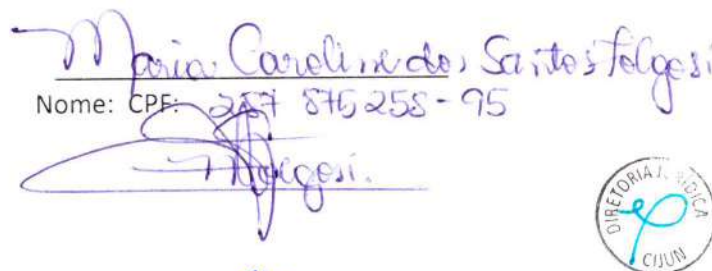 Maria Caroline dos Santos Folgosi
Nome: CPF: 287 876 258-95
Folgosi.
DIRETORIA JURÍDICA
CIJUN